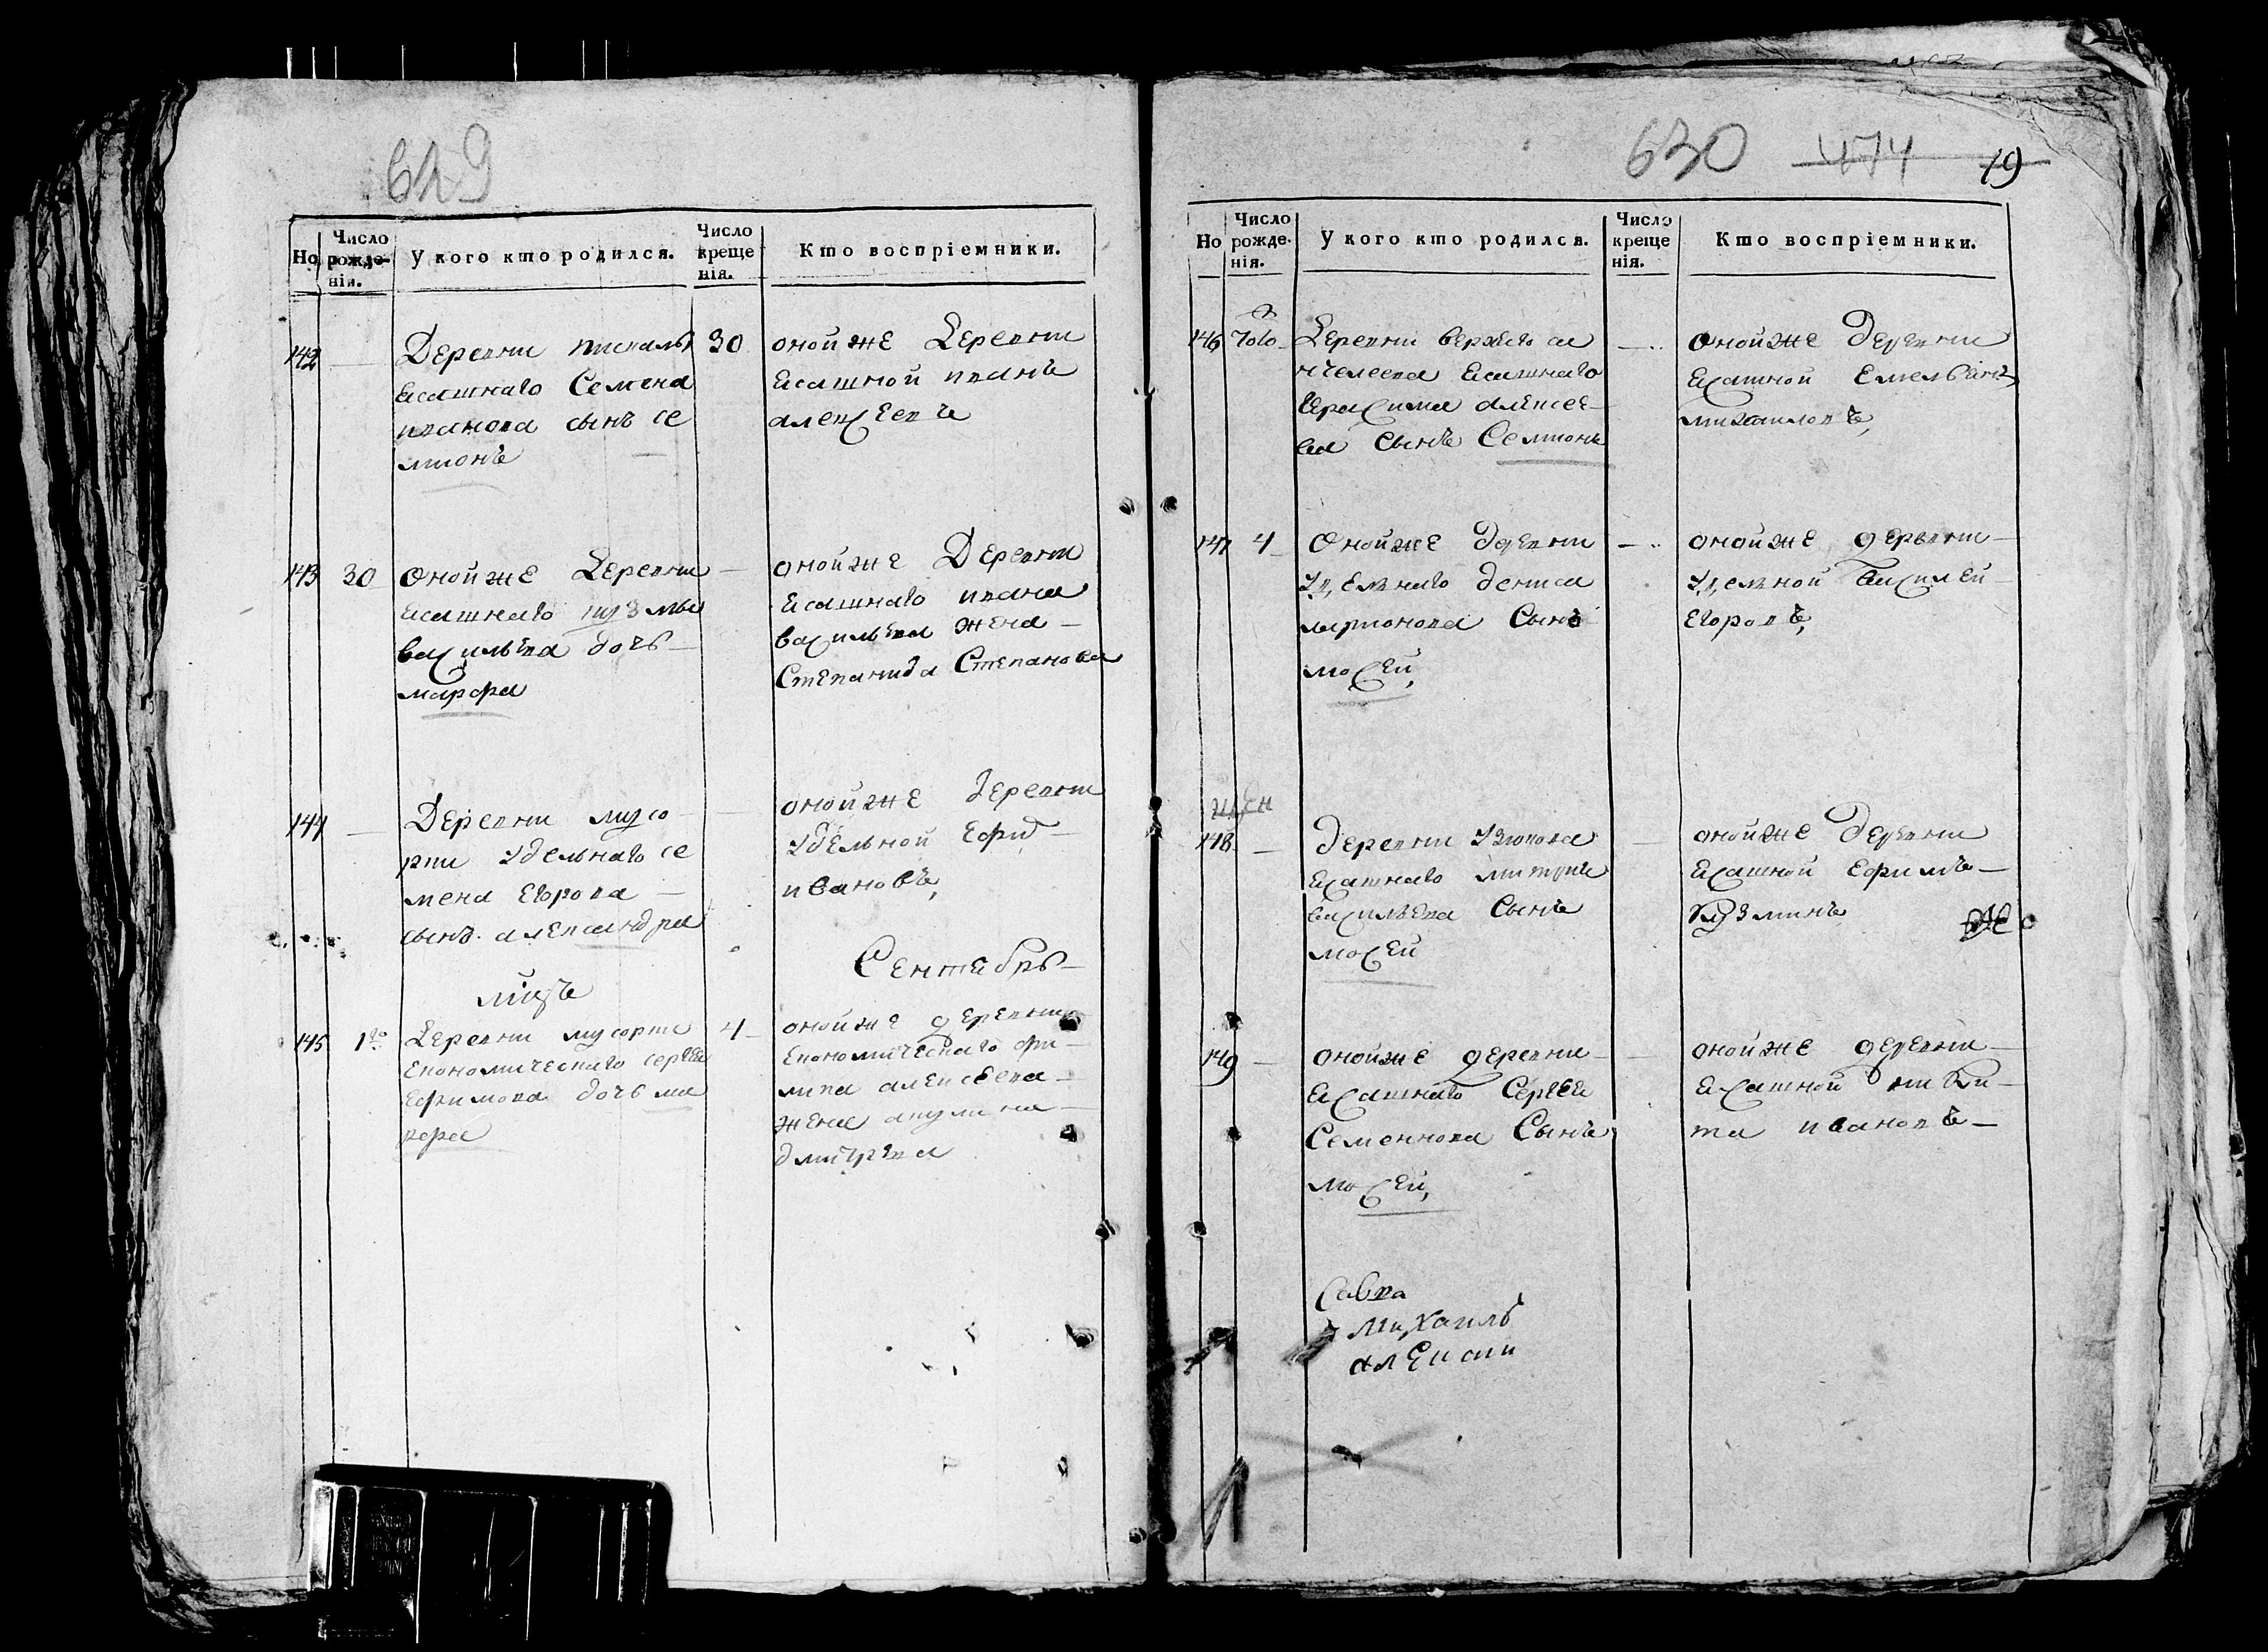 629
Но
Число рожде-нія.
У кого кто родился.
Число креще нія.
Кто воспріемники.
142 —
Деревни
ясашнаго Семена
иванова сынъ се
мионъ
30
оной же Деревни
ясашной иванъ
алексеевъ
143 30
оной же Деревни
ясашнаго кузмы
васильева дочь —
марфа
—
оной же Деревни
ясашнаго ивана
васильева жена —
Степанида Степанова
144 —
Деревни мусо
рки удельнаго се
мена Егорова —
сынъ александра
—
оной же деревни
удельной
ивановъ,
Сентябрь —
145 1го
Деревни мусорки
Економическаго сергея
Ефимова дочь ма
рфа
4
оной же деревни
Економическаго фи —
липа алексеева —
жена акулина —
дмитрева
630 474 19
Но
Число рожде-нія.
У кого кто родился.
Число креще нія.
Кто воспріемники.
146
Деревни верхяго са
нчелеева ясашнаго
Герасима алексее —
ва сынъ Семионъ
—
оной же Деревни
ясашной Емельянъ
михаиловъ,
147 4
Оной же деревни
удельнаго дениса
ларионова Сынъ
мосей,
—
оной же деревни —
удельной василей
Егоровъ,
148 —
деревни Узюкова
ясашнаго
васильева Сынъ
мосей
—
оной же Деревни
ясашной Ефимъ —
Кузминъ
149 —
оной же деревни —
ясашнаго Сергея
Семеннова Сынъ
мосей,
—
оной же деревни —
ясашной ники —
та ивановъ —
Савва
Михаилъ